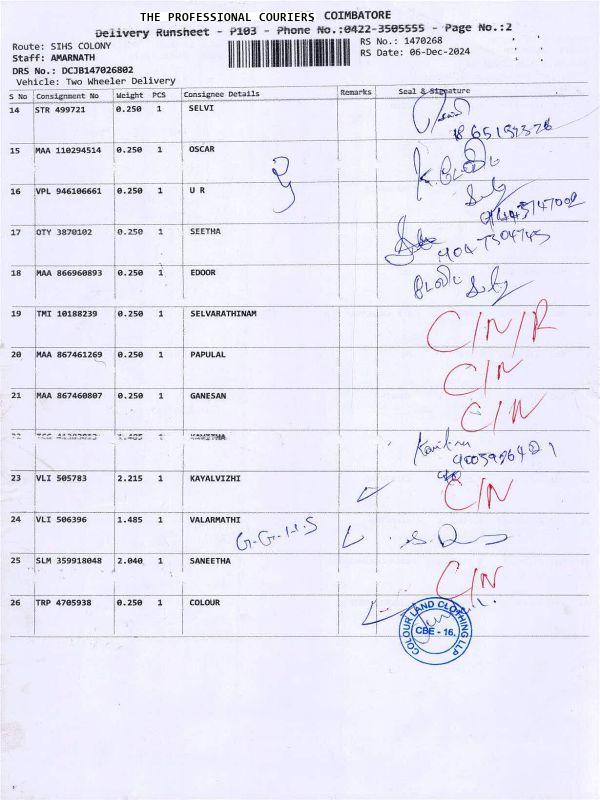 THE PROFESSIONAL COURIERS COIMBATORE
Delivery Runsheet - P103 - Phone No.:0422-3505555 - Page No.:2
Route: SIHS COLONY
RS No.: 1470268
Staff: AMARNATH
RS Date: 06-Dec-2024
DRS No.: DCJB147026802
Vehicle: Two Wheeler Delivery
S No Consignment No Weight PCS Consignee Details Remarks Seal & Signature
14 STR 499721 0.250 1 SELVI
15 MAA 110294514 0.250 1 OSCAR
16 VPL 946106661 0.250 1 U R
17 OTY 3870102 0.250 1 SEETHA
18 MAA 866960893 0.250 1 EDOOR
19 TMI 10188239 0.250 1 SELVARATHINAM C/N/R
20 MAA 867461269 0.250 1 PAPULAL C/N
21 MAA 867460807 0.250 1 GANESAN C/N
1.485 1 KAVITHA
23 VLI 505783 2.215 1 KAYALVIZHI C/N
24 VLI 506396 1.485 1 VALARMATHI
G.G.H.S
25 SLM 359918048 2.040 1 SANEETHA C/N
26 TRP 4705938 0.250 1 COLOUR
COLOUR LAND CLOTHING LLP
CBE - 16.